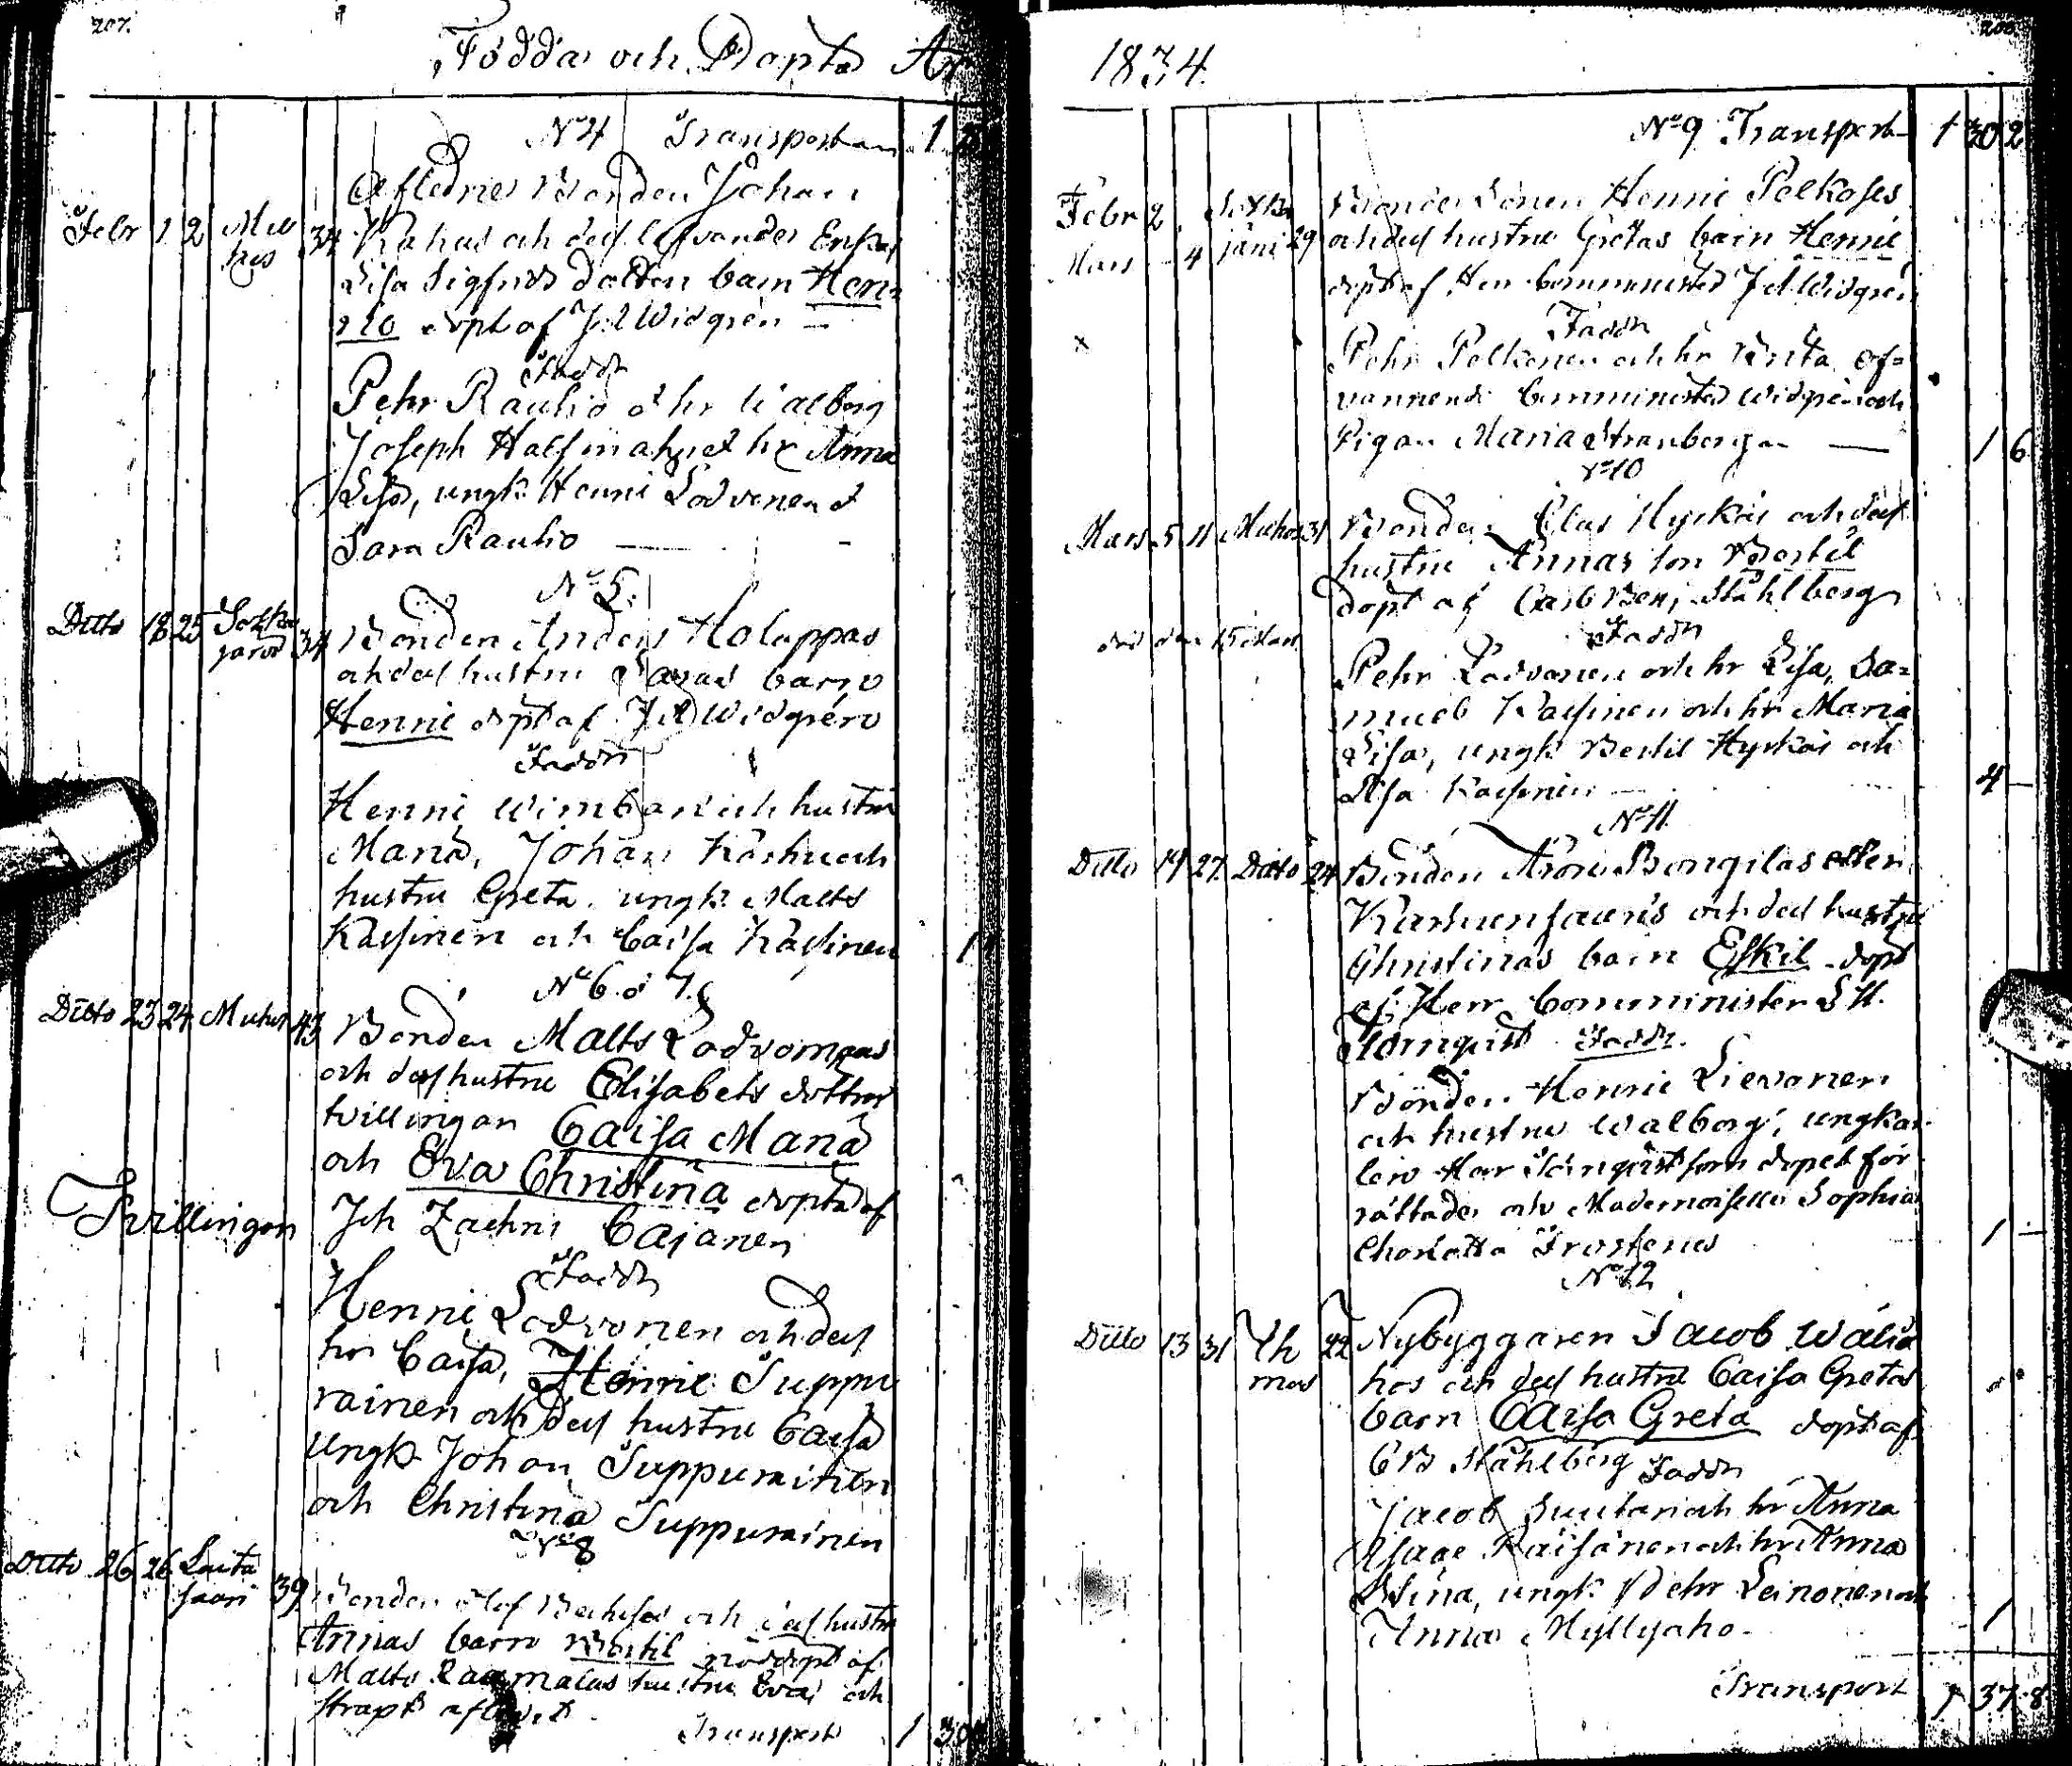 207.
Födda och Döpta År
No 4 Transport 1
Aflednes Bonden Johan
Febr 1 2 Mu
hos 34 Kahus och dess lefvandes Enkas
Lisa Sigfrids dotters barn Hen
ric döpt af J A Widgrén —
Faddr
Pehr Raulio o hr Walborg
Joseph Halfmahn et hr Anna
Lisa, ungk Henric Lodvonen o
Sara Raulio —
No 5.
Ditto 18 25 Sotka
jarvi 34 Bonden Anders Holappas
och dess hustru Saras barn
Henric döpt af J A Widgrén
Faddr
Henric Wimbari och hustru
Maria, Johan Karhu och
hustru Greta, ungk Matts
Kassinen och Caisa Kassinen 1
No 6 o 7.
Ditto 23 24 Muhos 43 Bonden Matts Lodvonens
och dess hustru Elisabets döttrar
tvillingar Caisa Maria
och Eva Christina döpta af
Tvillingar Joh Zachris Cajanen
Faddr
Henric Lodvonen och dess
hr Caisa, Henric Suppu
rainen och dess hustru Caisa
Ungk Johan Suppurainen
och Christina Suppurainen
No 8
Ditto 26 26 Laita
saari 39 Bonden Olof och dess hustru
Annas barn Bertil nöddöpt af
Matts hustru Eva och
strax aflidit.
Transport 1 30
208.
1834.
No 9 Transport 1 30 2
Febr 2 Sotka Bonde Sonen Henric Pelkoses
Mars 4 jarvi 29 och dess hustru Gretas barn Henric
döpt af Herr Comminister J A Widgrén
Faddr
Pehr Pelkonen och hr Brita, of=
vannemde Comminister Widgrén och
Pigan Maria Stranberg — 1 6
No 10
Mars 5 11 Muhos 31 Bonden Clas Hyrkäs och dess
hustru Annas son Bertil
döpt af Carl Benj Ståhlberg
död den 15 Mars
Faddr
Pehr Lodvonen och hr Lisa, Sa=
muel Kassinen och hr Maria
Lisa, ungk Bertil Hyrkäs och
Lisa Kassinen — 4 —
No 11.
Ditto 19 27 Ditto 24 Bonden Aron Bongilas eller
Karhunsaaris och dess hustru
Christinas barn Eskil döpt
af Herr Comminister S H.
Törnqvist Faddr.
Bonden Henric Lievonen
och hustru Walborg, ungkar
len Herr Törnqvist som dopet för
rättade och Mademoiselle Sophia
Charlotta Frosterus 1 —
No 12
Ditto 13 31 Th
mas 22 Nybyggaren Jacob Wälia
hos och dess hustru Caisa Gretas
barn Caisa Greta döpt af
C B Ståhlberg Faddr
Jacob Suutari och hr Anna
Isaac Räisänen och hr Anna
Stina, ungk Pehr Leinonen och
Anna Myllyaho. 1
Transport 1 37 8